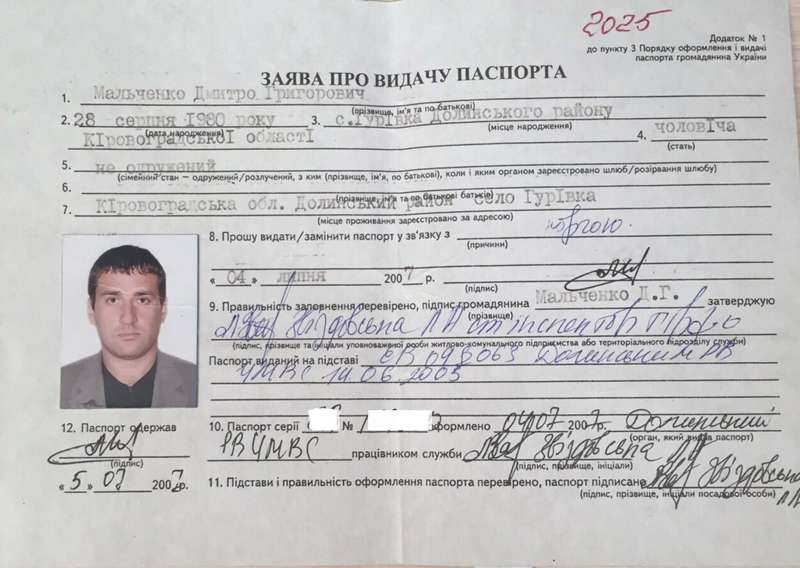 2025
Додаток № 1
до пункту 3 Порядку оформлення і видачі
паспорта громадянина України
ЗАЯВА ПРО ВИДАЧУ ПАСПОРТА
1. Мальченко Дмитро Григорович
(прізвище, ім'я та по батькові)
2. 28 серпня 1980 року 3. с.Гурівка Долинського району
(дата народження) (місце народження)
Кіровоградської області 4. чоловіча
(стать)
5. не одружений
(сімейний стан – одружений/розлучений, з ким (прізвище, ім'я, по батькові), коли і яким органом зареєстровано шлюб/розірвання шлюбу)
6.
(прізвище, ім'я та по батькові батьків)
7. Кіровоградська обл. Долинський район село Гурівка
(місце проживання зареєстровано за адресою)
8. Прошу видати/замінити паспорт у зв'язку з
(причини)
« 04 » липня 2007 р.
(підпис)
9. Правильність заповнення перевірено, підпис громадянина Мальченко Д.Г. затверджую
(прізвище)
Звіздовська Л А ст інспектор
(підпис, прізвище та ініціали уповноваженої особи житлово-комунального підприємства або територіального підрозділу служби)
Паспорт виданий на підставі
УМВС 14.06.2005
12. Паспорт одержав 10. Паспорт серії № оформлено 04 07 2007р. Долинський
(орган, який видав паспорт)
(підпис) РВУМВС працівником служби Звіздовська ЛА
(підпис, прізвище, ініціали)
« 5 » 07 2007р. 11. Підстави і правильність оформлення паспорта перевірено, паспорт підписано Звіздовська
(підпис, прізвище, ініціали посадової особи) ЛА